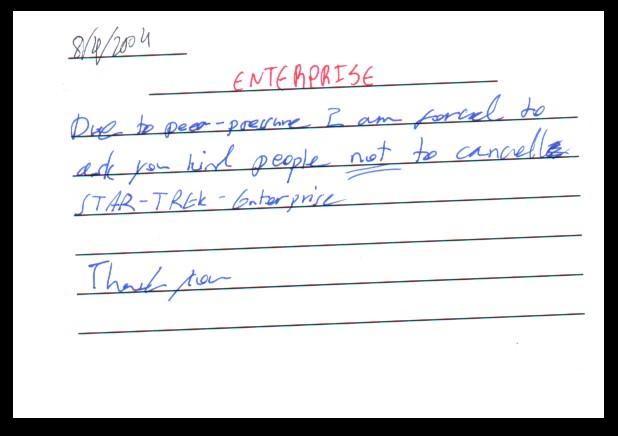 8/4/2004
ENTERPRISE
Due to peer-pressure I am forced to
ask you kind people not to cancell
STAR-TREK-Enterprise
Thank you